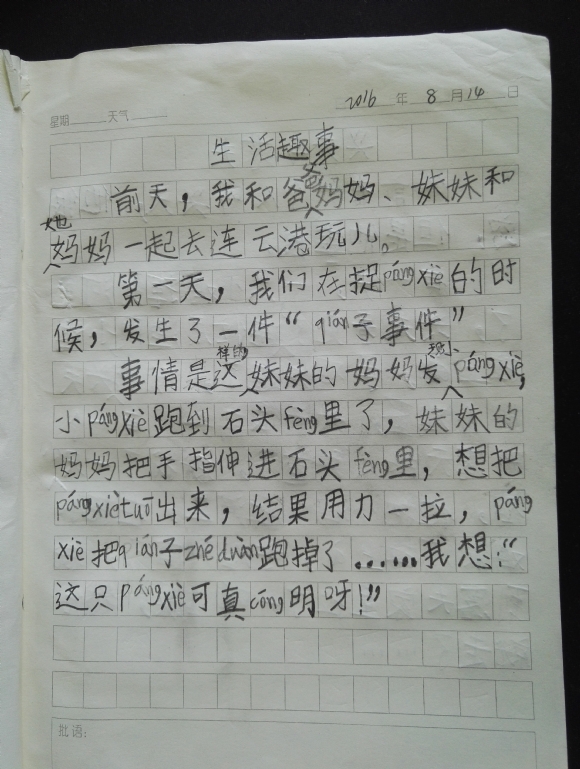 2016 年 8 月 14 日
星期 天气
生活趣事
前天，我和爸爸妈妈、妹妹和
她妈妈一起去连云港玩儿。
第一天，我们在捉páng xiè的时
候，发生了一件“qián子事件”
事情是这样的妹妹的妈妈发现小páng xiè，
小páng xiè跑到石头fèng里了，妹妹的
妈妈把手指伸进石头fèng里，想把
páng xiè tuō出来，结果用力一拉，páng
xiè把qián子zhé duàn跑掉了……我想：“
这只páng xiè可真cōng明呀！”
批语：